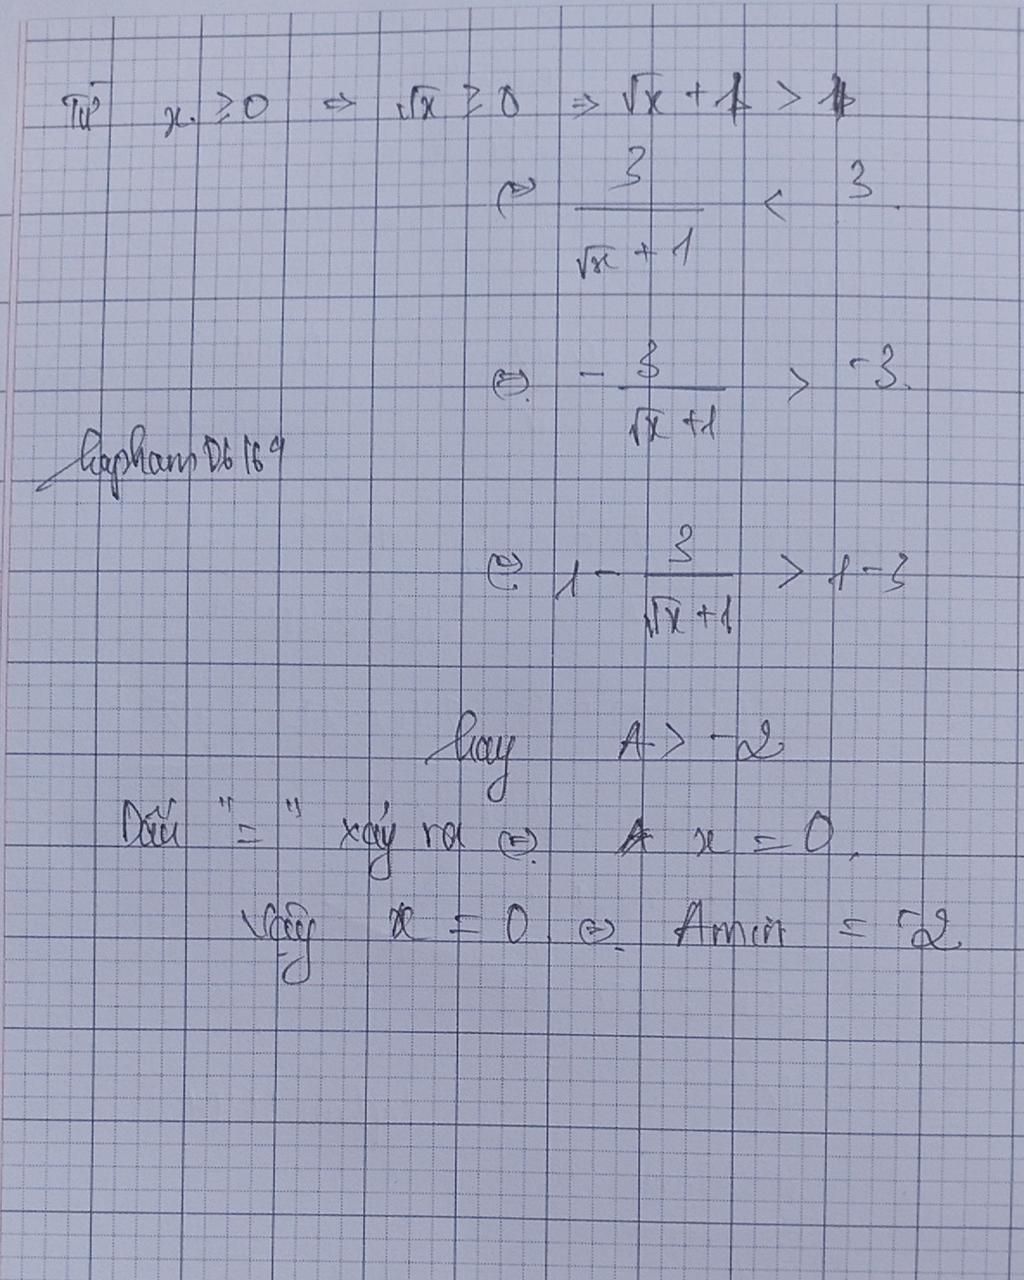 Từ x ≥ 0 ⇒ √x ≥ 0 ⇒ √x + 1 > 1
⇔ 3/(√x + 1) < 3.
⇔ - 3/(√x + 1) > -3.
hapham06169
⇔ 1 - 3/(√x + 1) > 1 - 3
hay A > -2
Dấu "=" xảy ra ⇔ x = 0.
Vậy x = 0 ⇔ Amin = -2